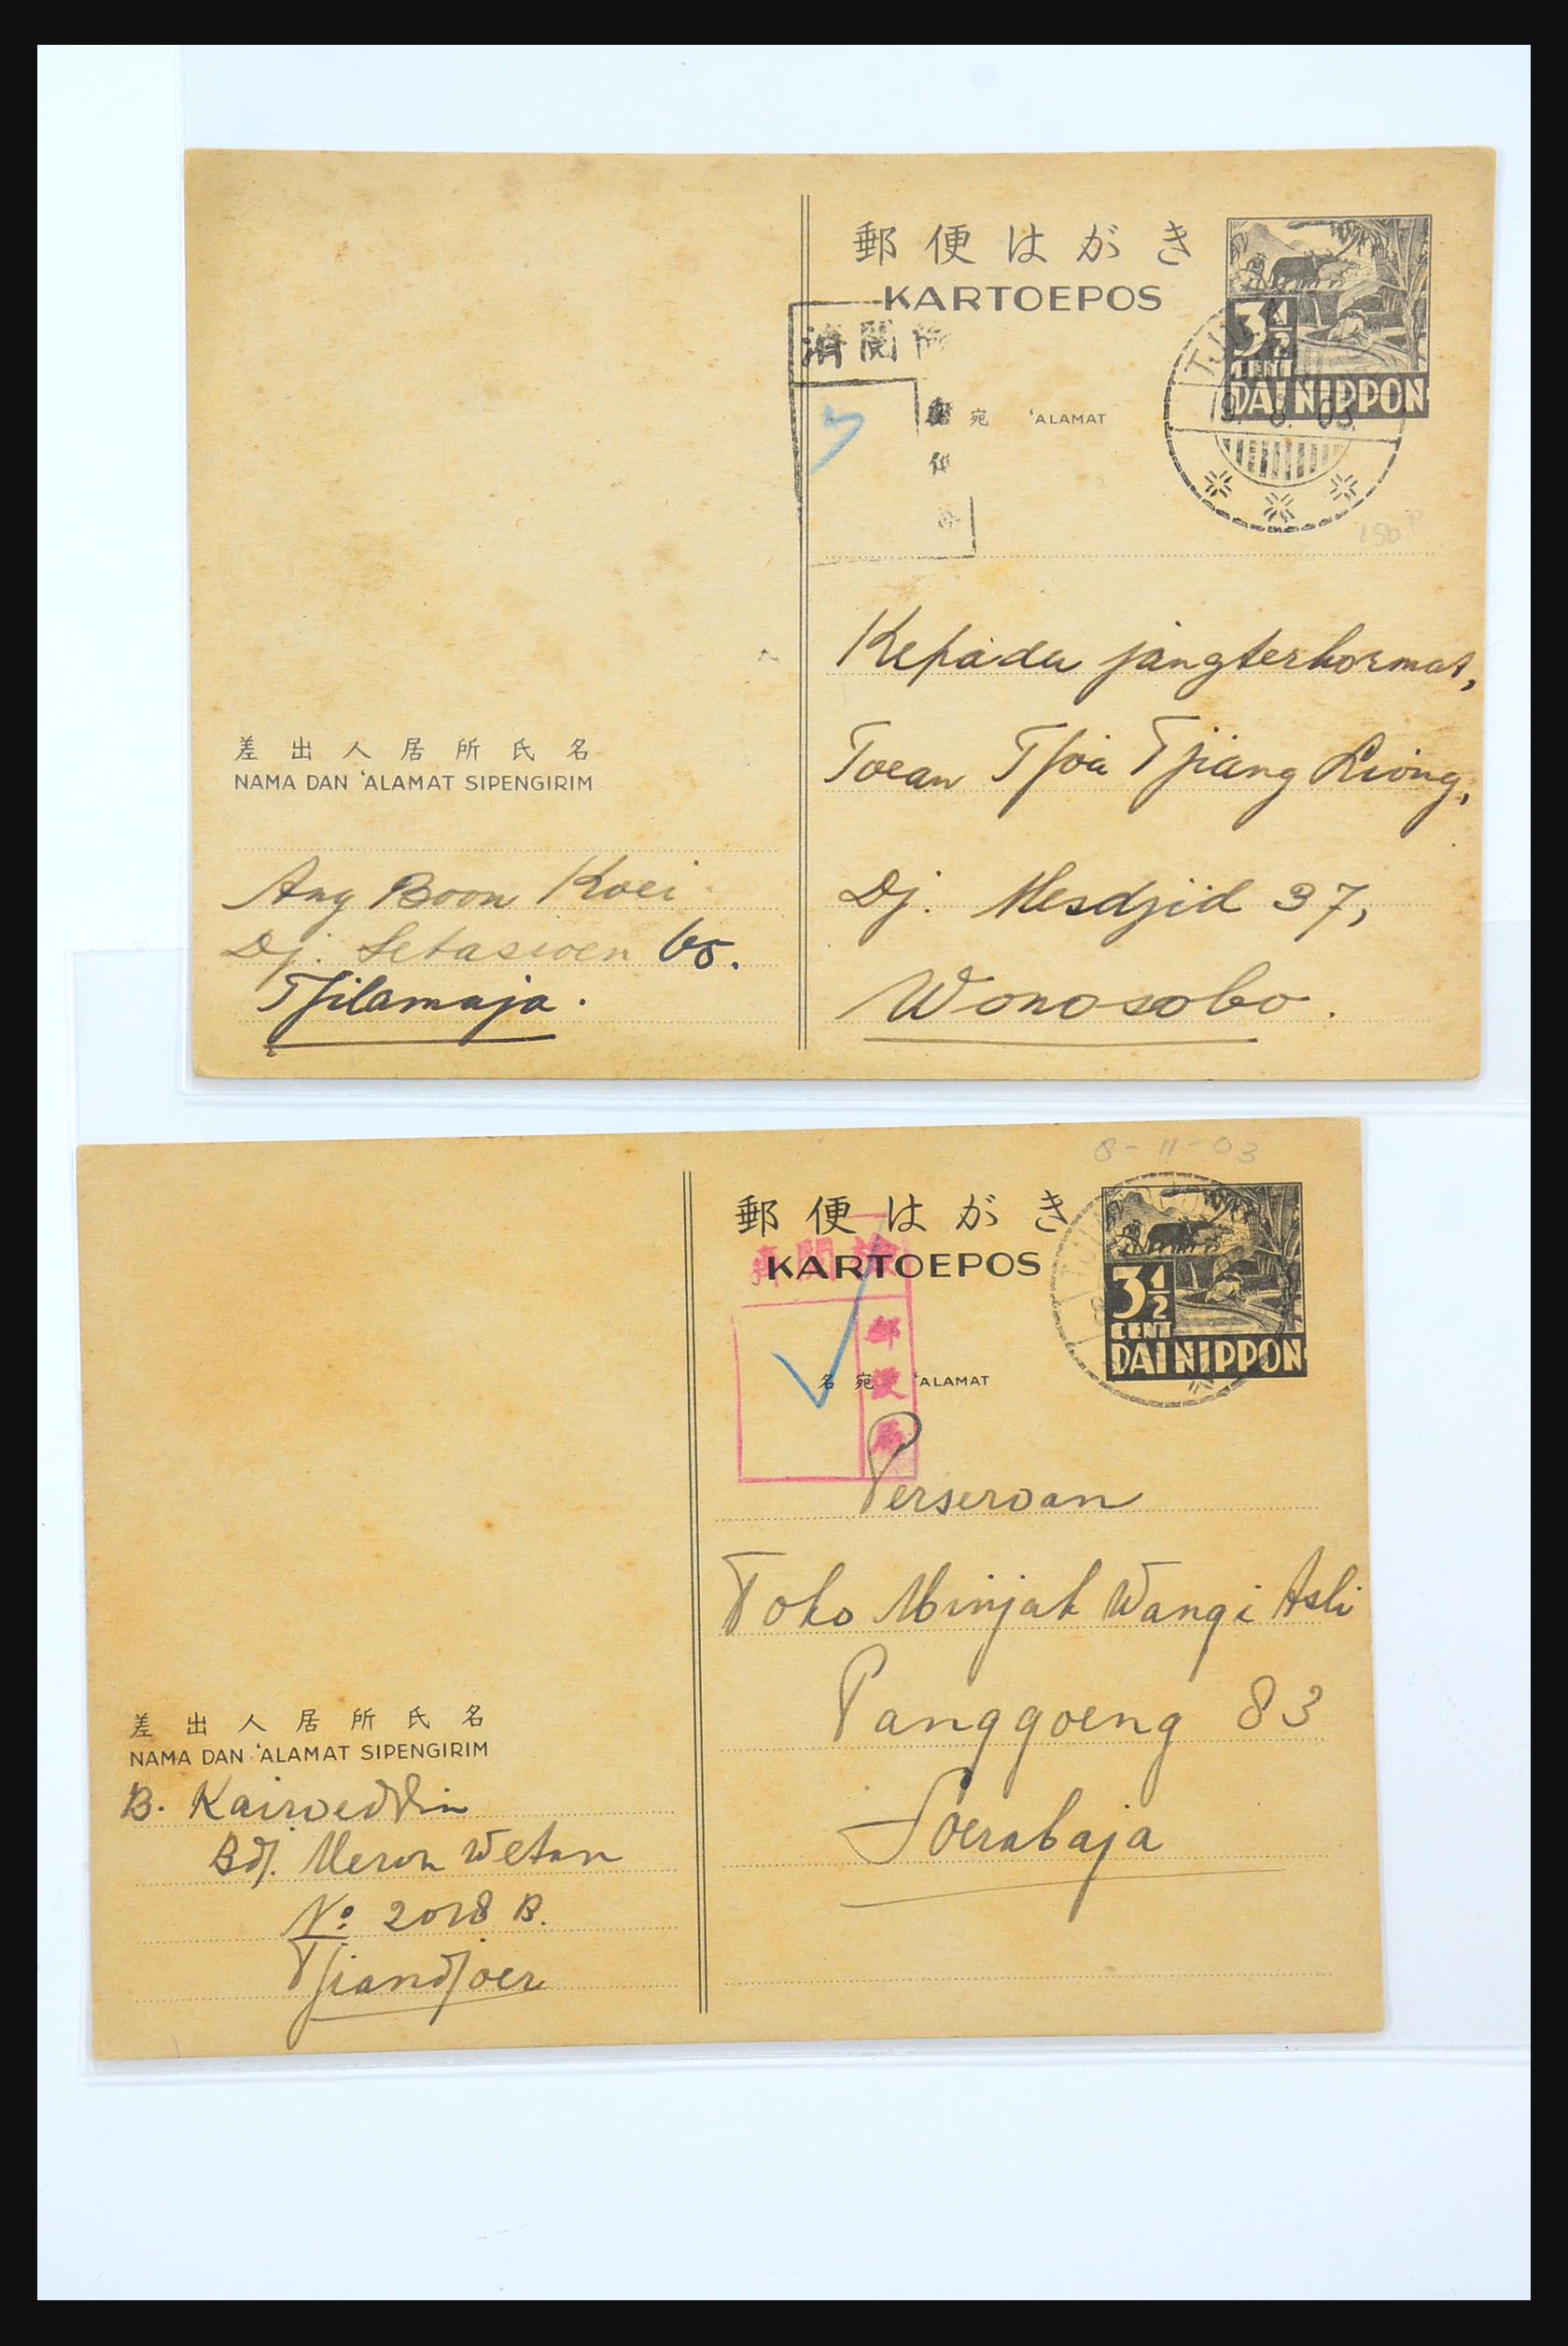 郵便はがき
KARTOEPOS
3½
CENT
DAI NIPPON
済閲
郵
便
宛 'ALAMAT
150 P
Kepada jangterhormat,
Toean Tjoa Tjiang Liong,
Dj. Mesdjid 37,
Wonosobo.
差出人居所氏名
NAMA DAN 'ALAMAT SIPENGIRIM
Ang Boon Koei
Dj. Setasioen 65.
Tjilamaja.
8-11-03
郵便はがき
KARTOEPOS
3½
CENT
DAI NIPPON
閲検
郵
便
局
名宛 'ALAMAT
Perseroan
Toko Minjak Wangi Asli
Panggoeng 83
Soerabaja
差出人居所氏名
NAMA DAN 'ALAMAT SIPENGIRIM
B. Kairoeddin
Bdj. Meron Wetan
No: 2018 B.
Tjiandjoer